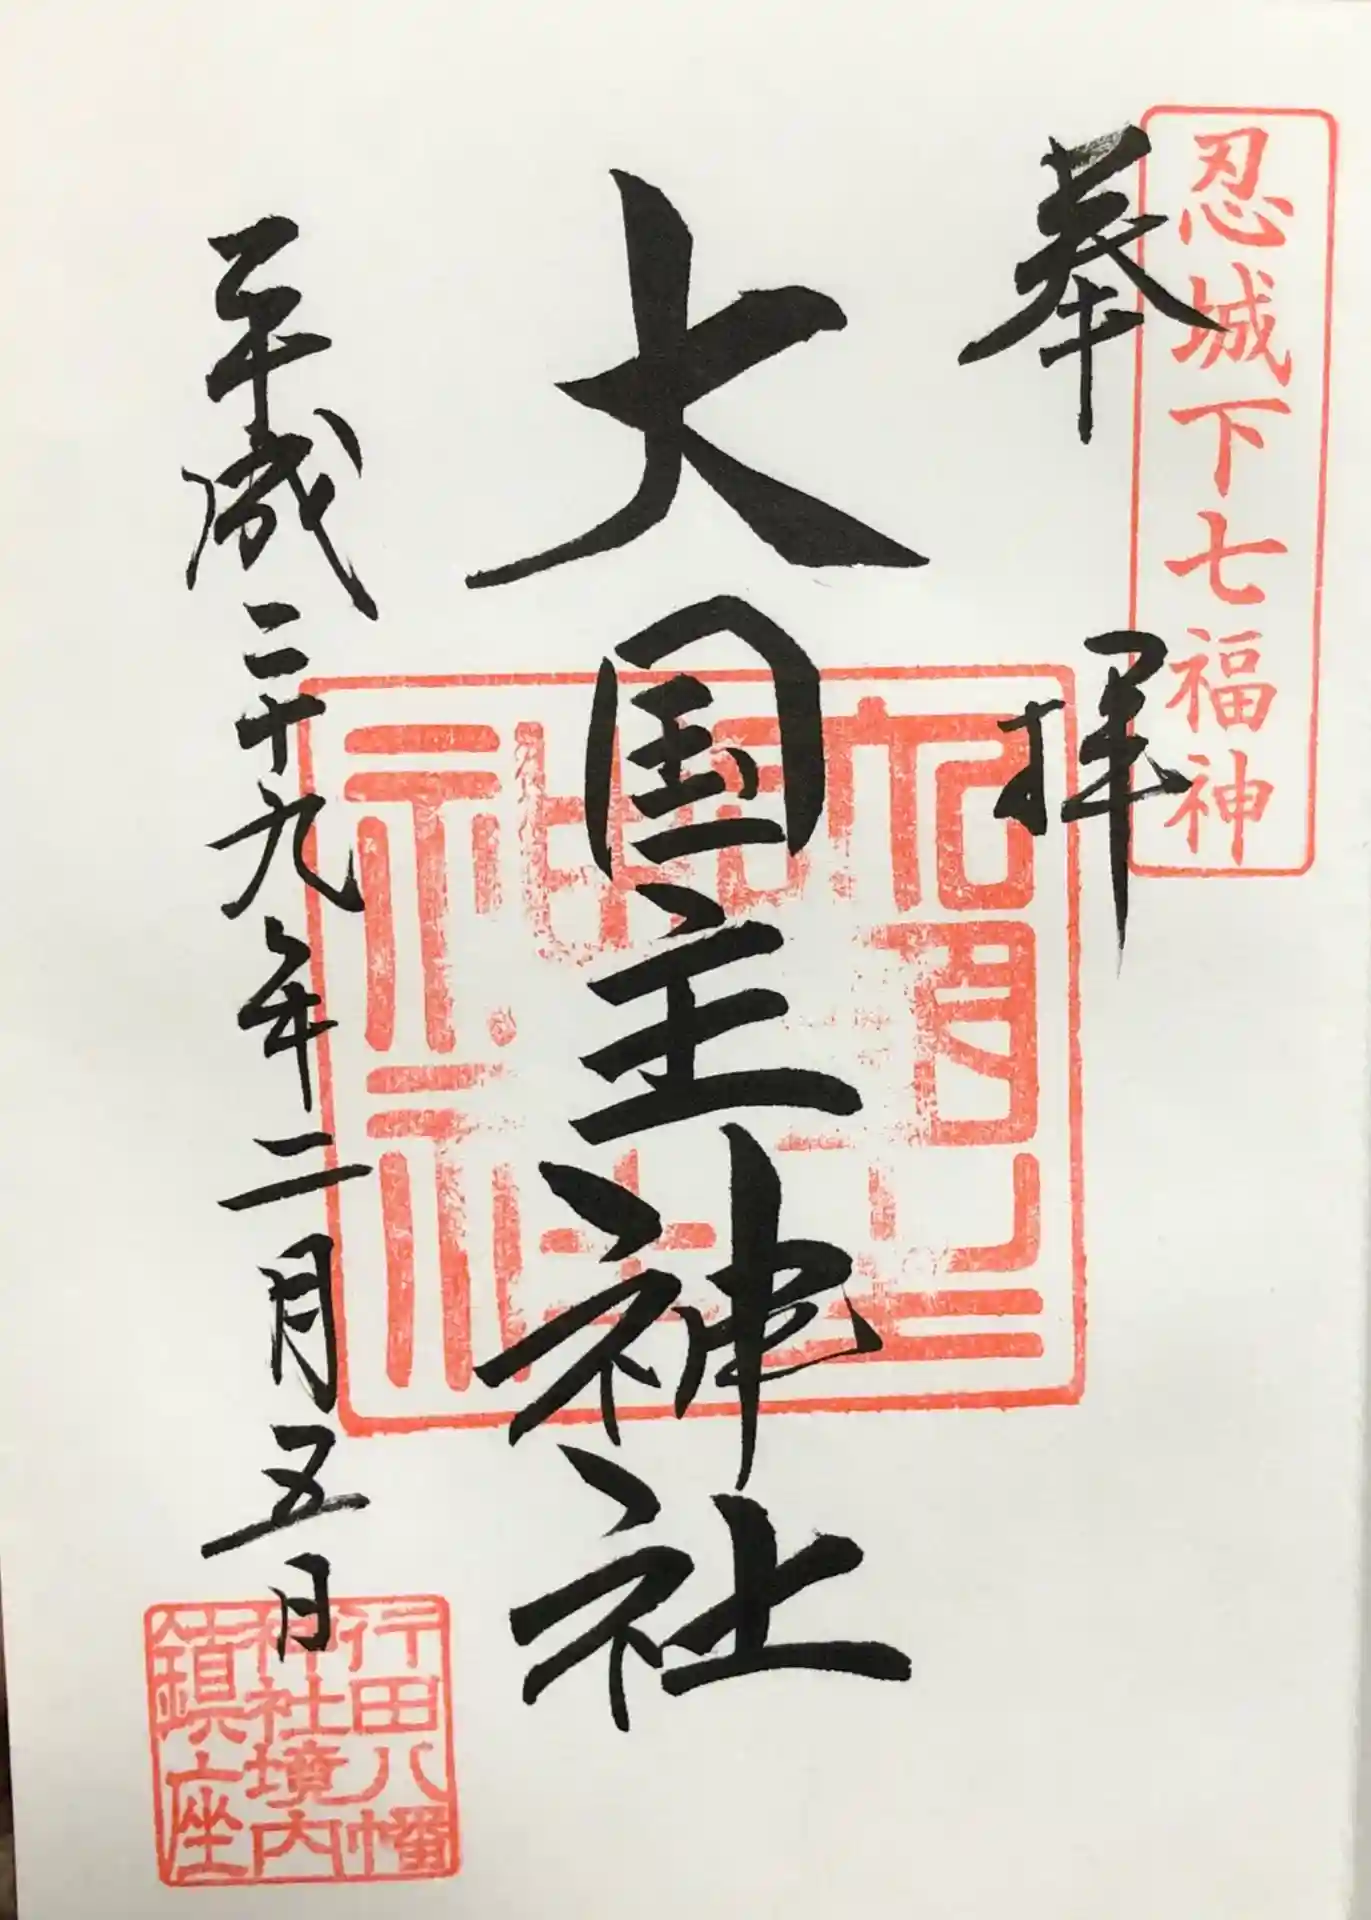 忍城下七福神
奉拝
大国主神社
平成二十九年二月五日
行田八幡
神社境内
鎮座